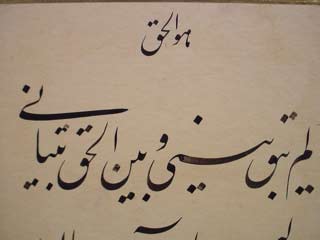 هو الحق
لم تبق بینی و بین الحق تبیانی